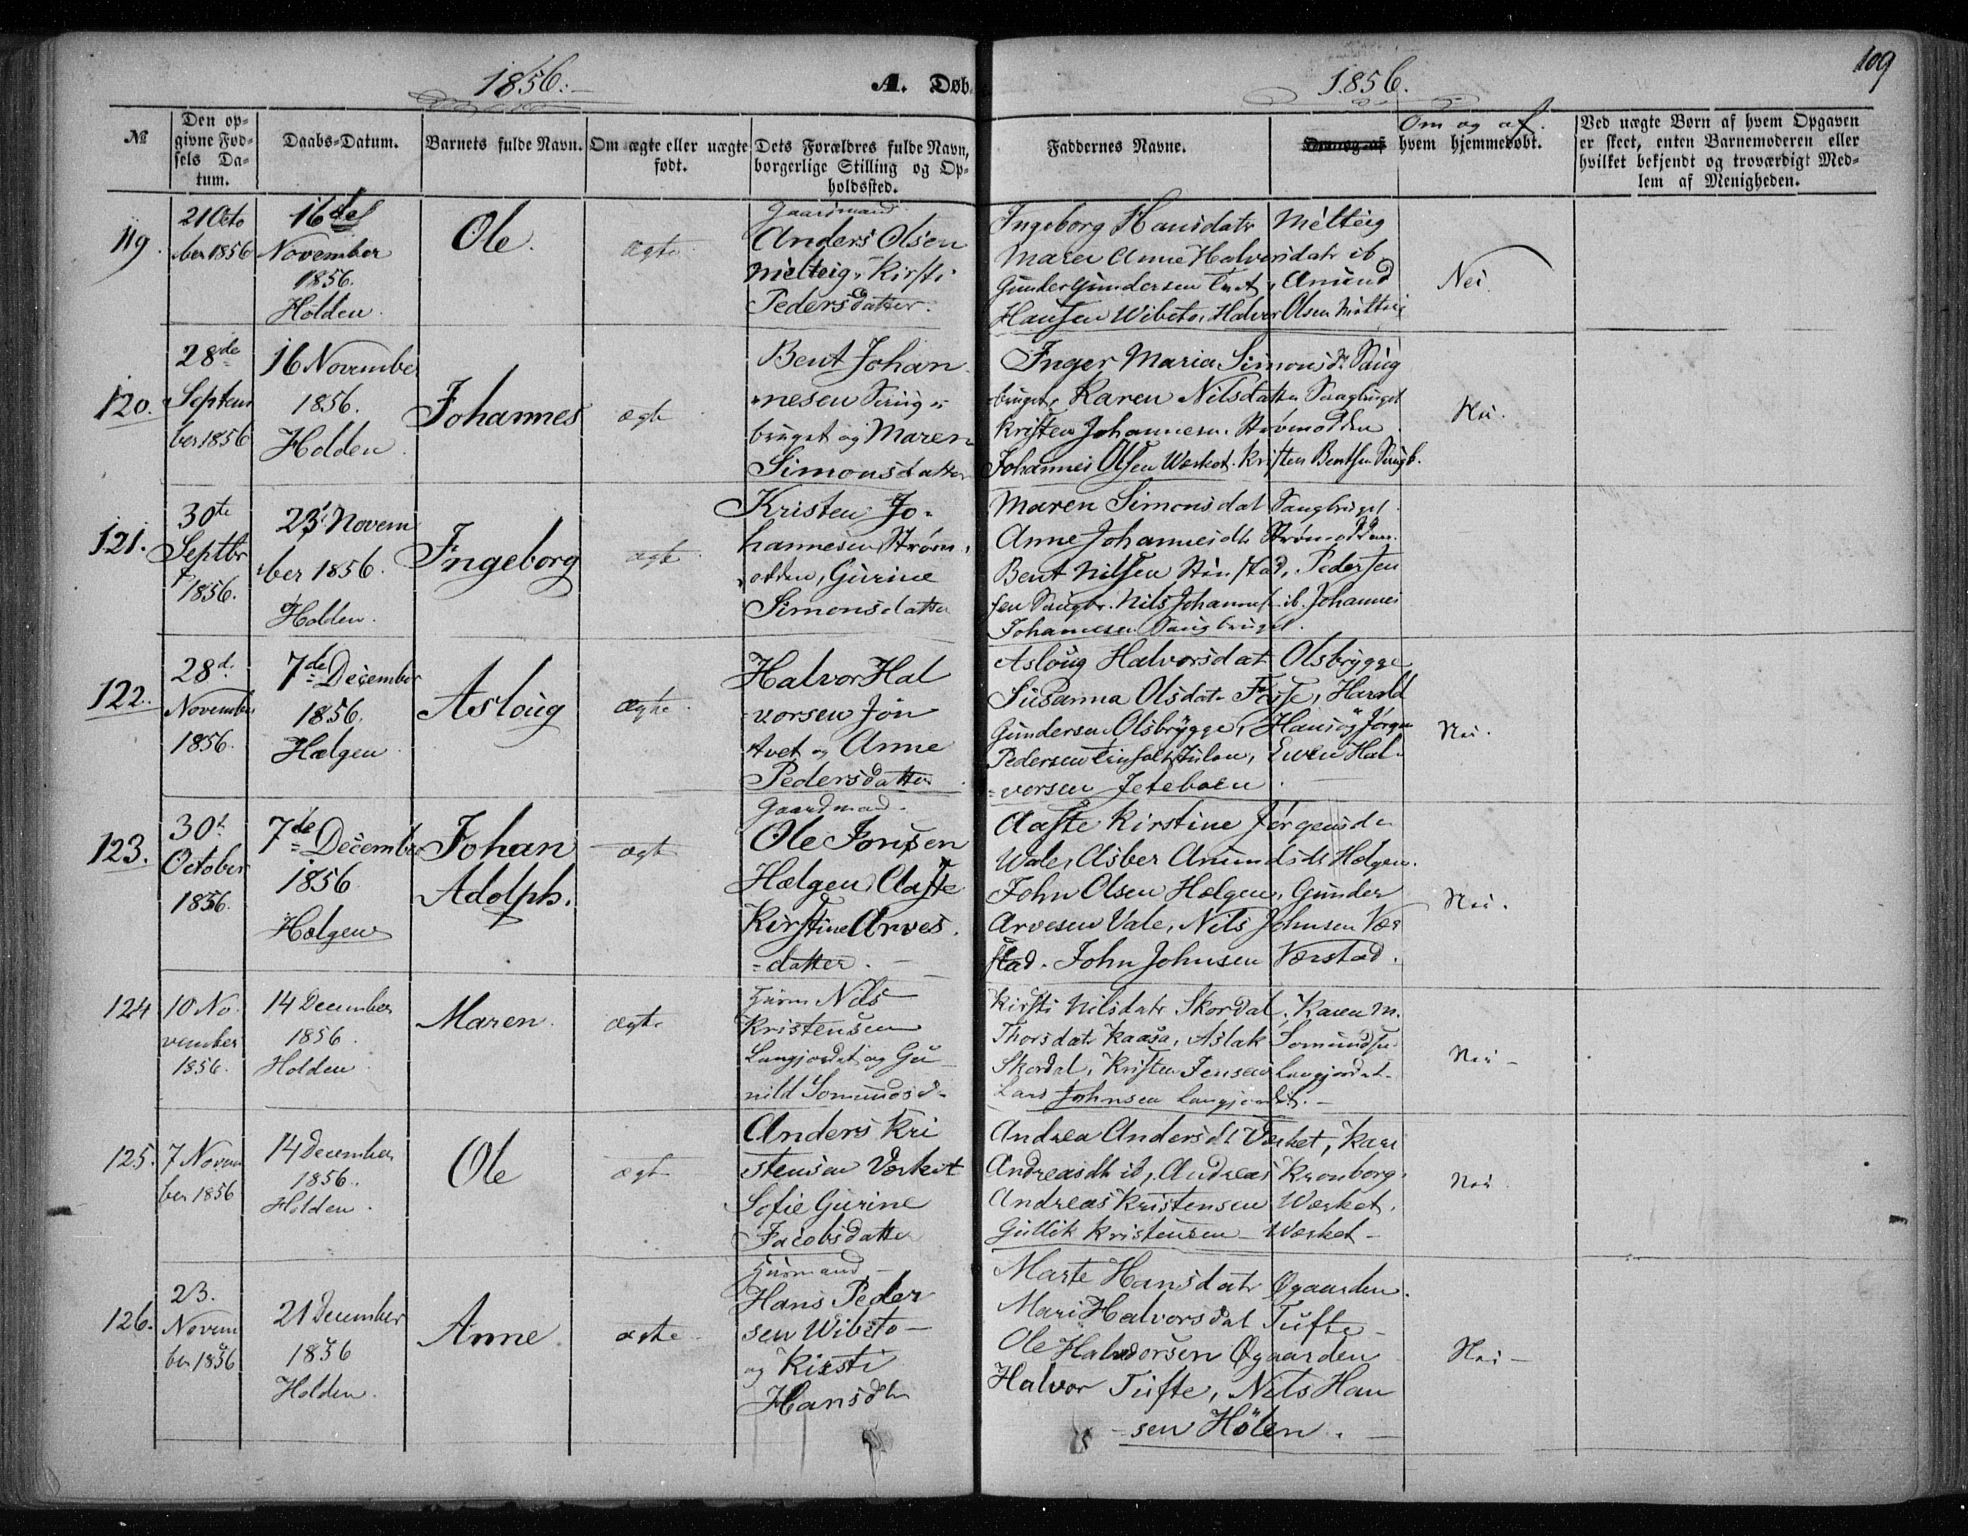 1856.
A. Døb
1856.
109
№
Den op-
givne Fød-
sels Da-
tum.
Daabs-Datum.
Barnets fulde Navn.
Om ægte eller uægte
født.
Dets Forældres fulde Navn,
borgerlige Stilling og Op-
holdssted.
Faddernes Navne.
Om og af
hvem hjemmedøbt.
Ved uægte Børn af hvem Opgaven
er skeet, enten Barnemoderen eller
hvilket bekjendt og troværdigt Med-
lem af Menigheden.
119.
21 Octo
ber 1856
16de
November
1856.
Holden.
Ole.
ægte
Gaardmand
Anders Olsen
Melteig, Kirsti
Pedersdatter.
Ingeborg Hansdatr Melteig
Maren Anne Halvorsdatr ib.
Gunder Gundersen, Amund
Hansen Wibeto, Halvor Olsen Melteig
Nei.
120.
28de
Septem
ber 1856
16 November
1856.
Holden
Johannes
ægte
Bent Johan
nesen Saug
bruget og Maren
Simonsdatter
Inger Maria Simonsdr Saug
bruget, Karen Nilsdatter Saugbruget
Kristen Johannesen Strømodden
Johannes Olsen Wærket. Kristen Bentsen Saugb.
Nei.
121.
30te
Septbr
1856.
23 Novem
ber 1856.
Holden.
Ingeborg
ægte
Kristen Jo-
hannesen Strøm
odden, Gurine
Simonsdatter
Maren Simonsdat Saugbruget
Anne Johannesdtr Strømodden.
Bent Nilsen, Pedersen
sen Saugbr. Nils Johannes ib. Johannes
Johannesen Saugbruget.
122.
28d.
November
1856.
7de December
1856.
Hælgen
Asloug
ægte
Halvor Hal
vorsen Jøn
tvet og Anne
Pedersdatter
Asloug Halvorsdat Olsbrygge
Susanna Olsdatr, Harald
Gundersen Olsbrygge, Hans og Jørgen
Pedersen, Even Hal-
vorsen Jeteboen
Nei.
123.
30t
October
1856.
7de December
1856
Hælgen
Johan
Adolph.
ægte
Gaardmand.
Ole Jonsen
Hælgen, Aaste
Kirstine Arves
datter.
Aaste Kirstine Jørgensdr
Vale, Asber Amundsdtr Hælgen.
John Olsen Hælgen, Gunder
Arvesen Vale, Nils Johnsen Vær
stad. John Johnsen Værstad.
Nei.
124
10 No
vember
1856.
14 December
1856.
Holden
Maren.
ægte
Husm Nils
Kristensen
Langjordet og Gu
nild Somundsd.
Kirsti Nilsdatr Skordal. Karen M.
Thorsdatr Kaasa, Aslak Somundsen
Skordal, Kristen Jensen Langjordet
Lars Johnsen Langjordet.
Nei
125.
7 Novem
ber 1856
14 December
1856.
Holden.
Ole
ægte
Anders Kri
stensen Værket
Sofie Gurine
Jacobsdatter
Andrea Andersdt Værket, Kari
Andreasdtr ib, Andreas Kronborg.
Andreas Kristensen Wærket.
Gullik Kristensen Wærket
Nei.
126.
23.
Novem
ber 1856
21 December
1856
Holden.
Anne.
ægte
Husmand
Hans Peder
sen Wibeto
og Kirsti
Hansdtr
Marte Hansdatr Øgaarden.
Mari Halvorsdat Tufte
Ole Halvorsen Øgaarden
Halvor Tufte, Nils Han
sen Hølen.
Nei